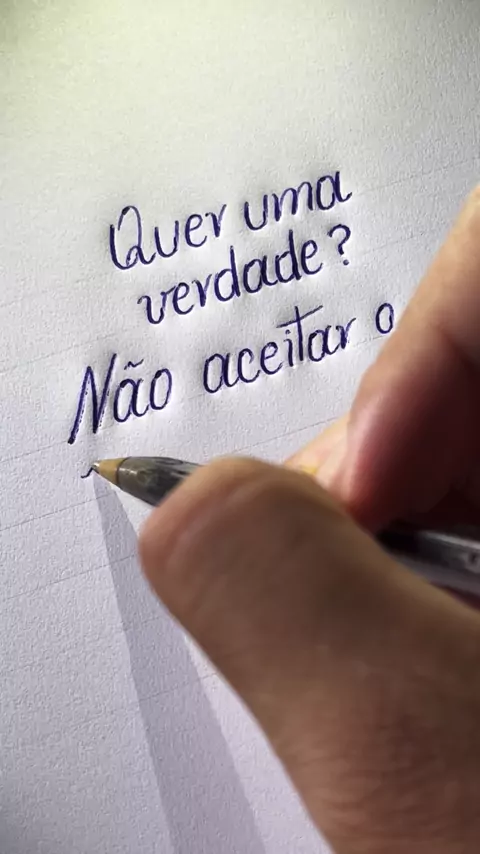 Quer uma
verdade?
Não aceitar o